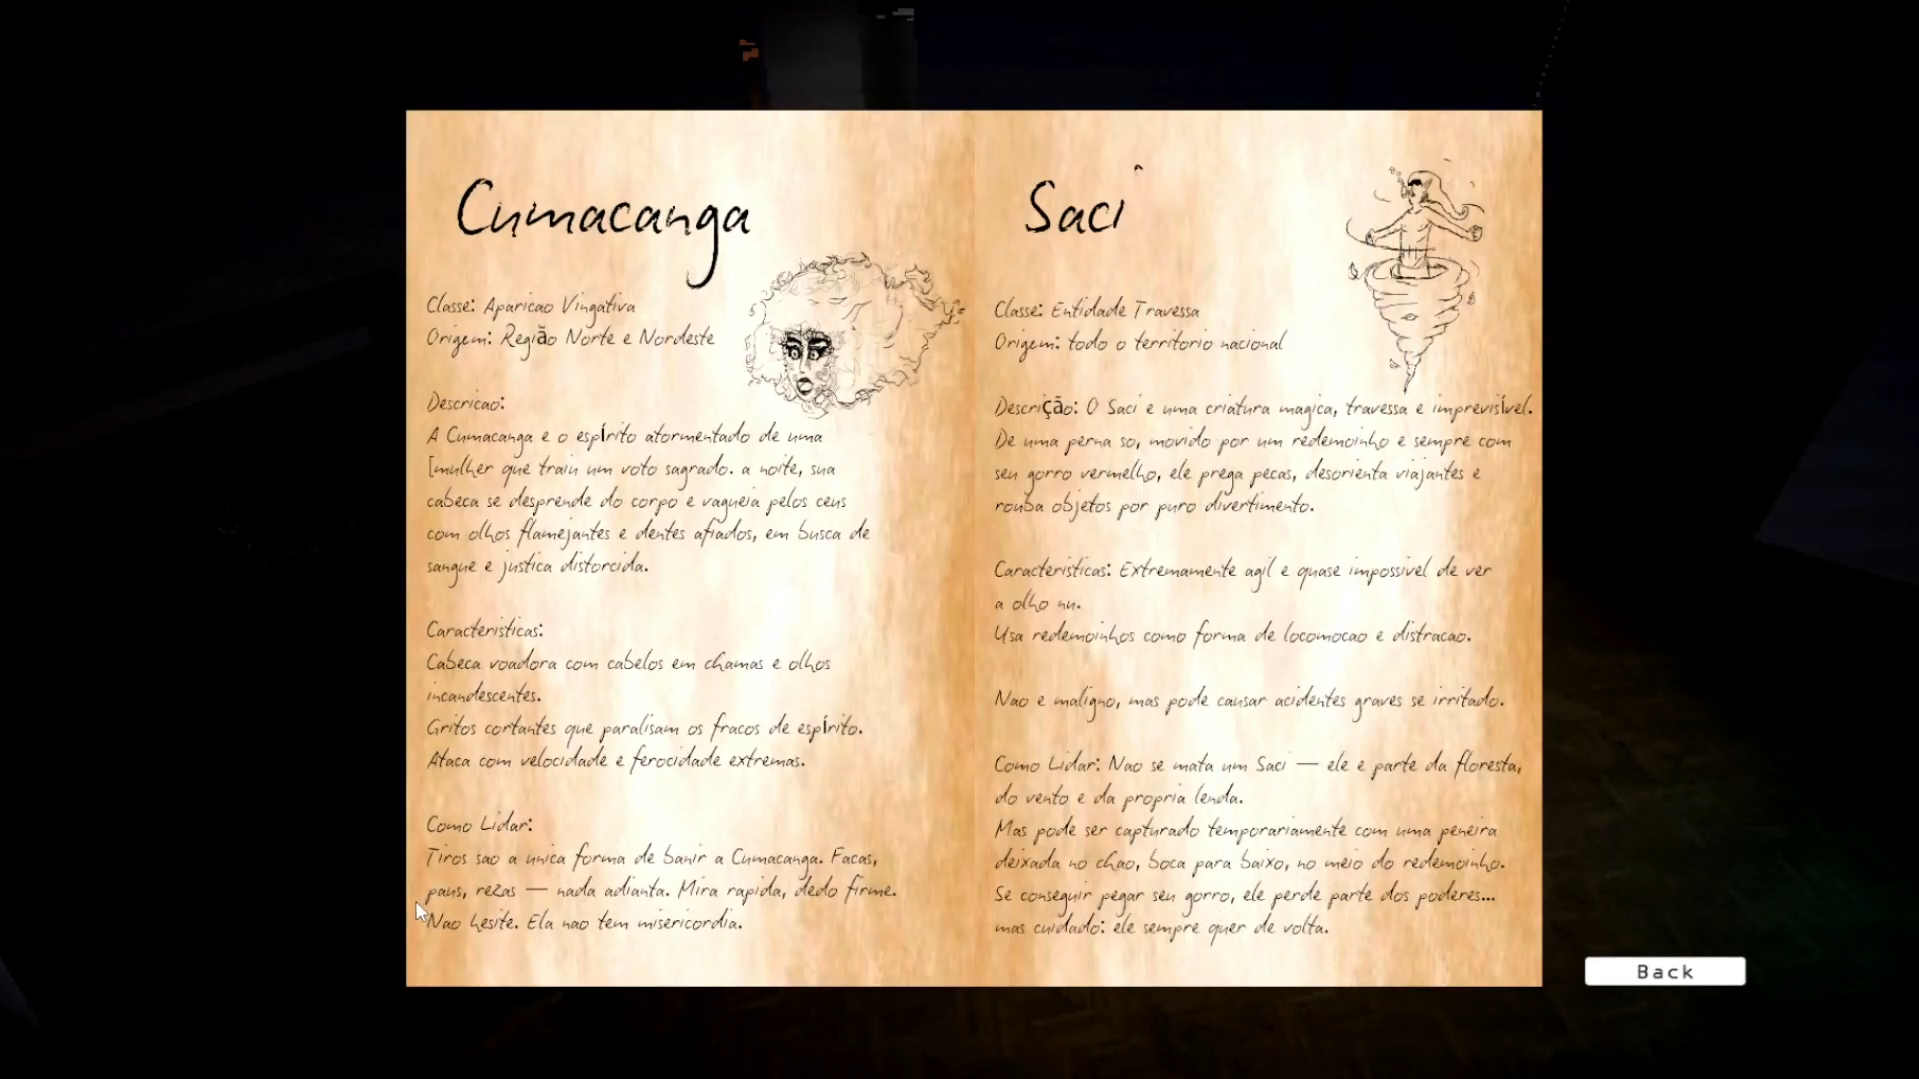 Cumacanga
Classe: Aparicao Vingativa
Origem: Região Norte e Nordeste
Descricao:
A Cumacanga e o espírito atormentado de uma
[mulher que traiu um voto sagrado. a noite, sua
cabeca se desprende do corpo e vagueia pelos ceus
com olhos flamejantes e dentes afiados, em busca de
sangue e justica distorcida.
Caracteristicas:
Cabeca voadora com cabelos em chamas e olhos
incandescentes.
Gritos cortantes que paralisam os fracos de espírito.
Ataca com velocidade e ferocidade extremas.
Como Lidar:
Tiros sao a unica forma de banir a Cumacanga. Facas,
paus, rezas — nada adianta. Mira rapida, dedo firme.
Nao hesite. Ela nao tem misericordia.
Saci
Classe: Entidade Travessa
Origem: todo o territorio nacional
Descrição: O Saci e uma criatura magica, travessa e imprevisível.
De uma perna so, movido por um redemoinho e sempre com
seu gorro vermelho, ele prega pecas, desorienta viajantes e
rouba objetos por puro divertimento.
Caracteristicas: Extremamente agil e quase impossivel de ver
a olho nu.
Usa redemoinhos como forma de locomocao e distracao.
Nao e maligno, mas pode causar acidentes graves se irritado.
Como Lidar: Nao se mata um Saci — ele e parte da floresta,
do vento e da propria lenda.
Mas pode ser capturado temporariamente com uma peneira
deixada no chao, boca para baixo, no meio do redemoinho.
Se conseguir pegar seu gorro, ele perde parte dos poderes...
mas cuidado: ele sempre quer de volta.
Back